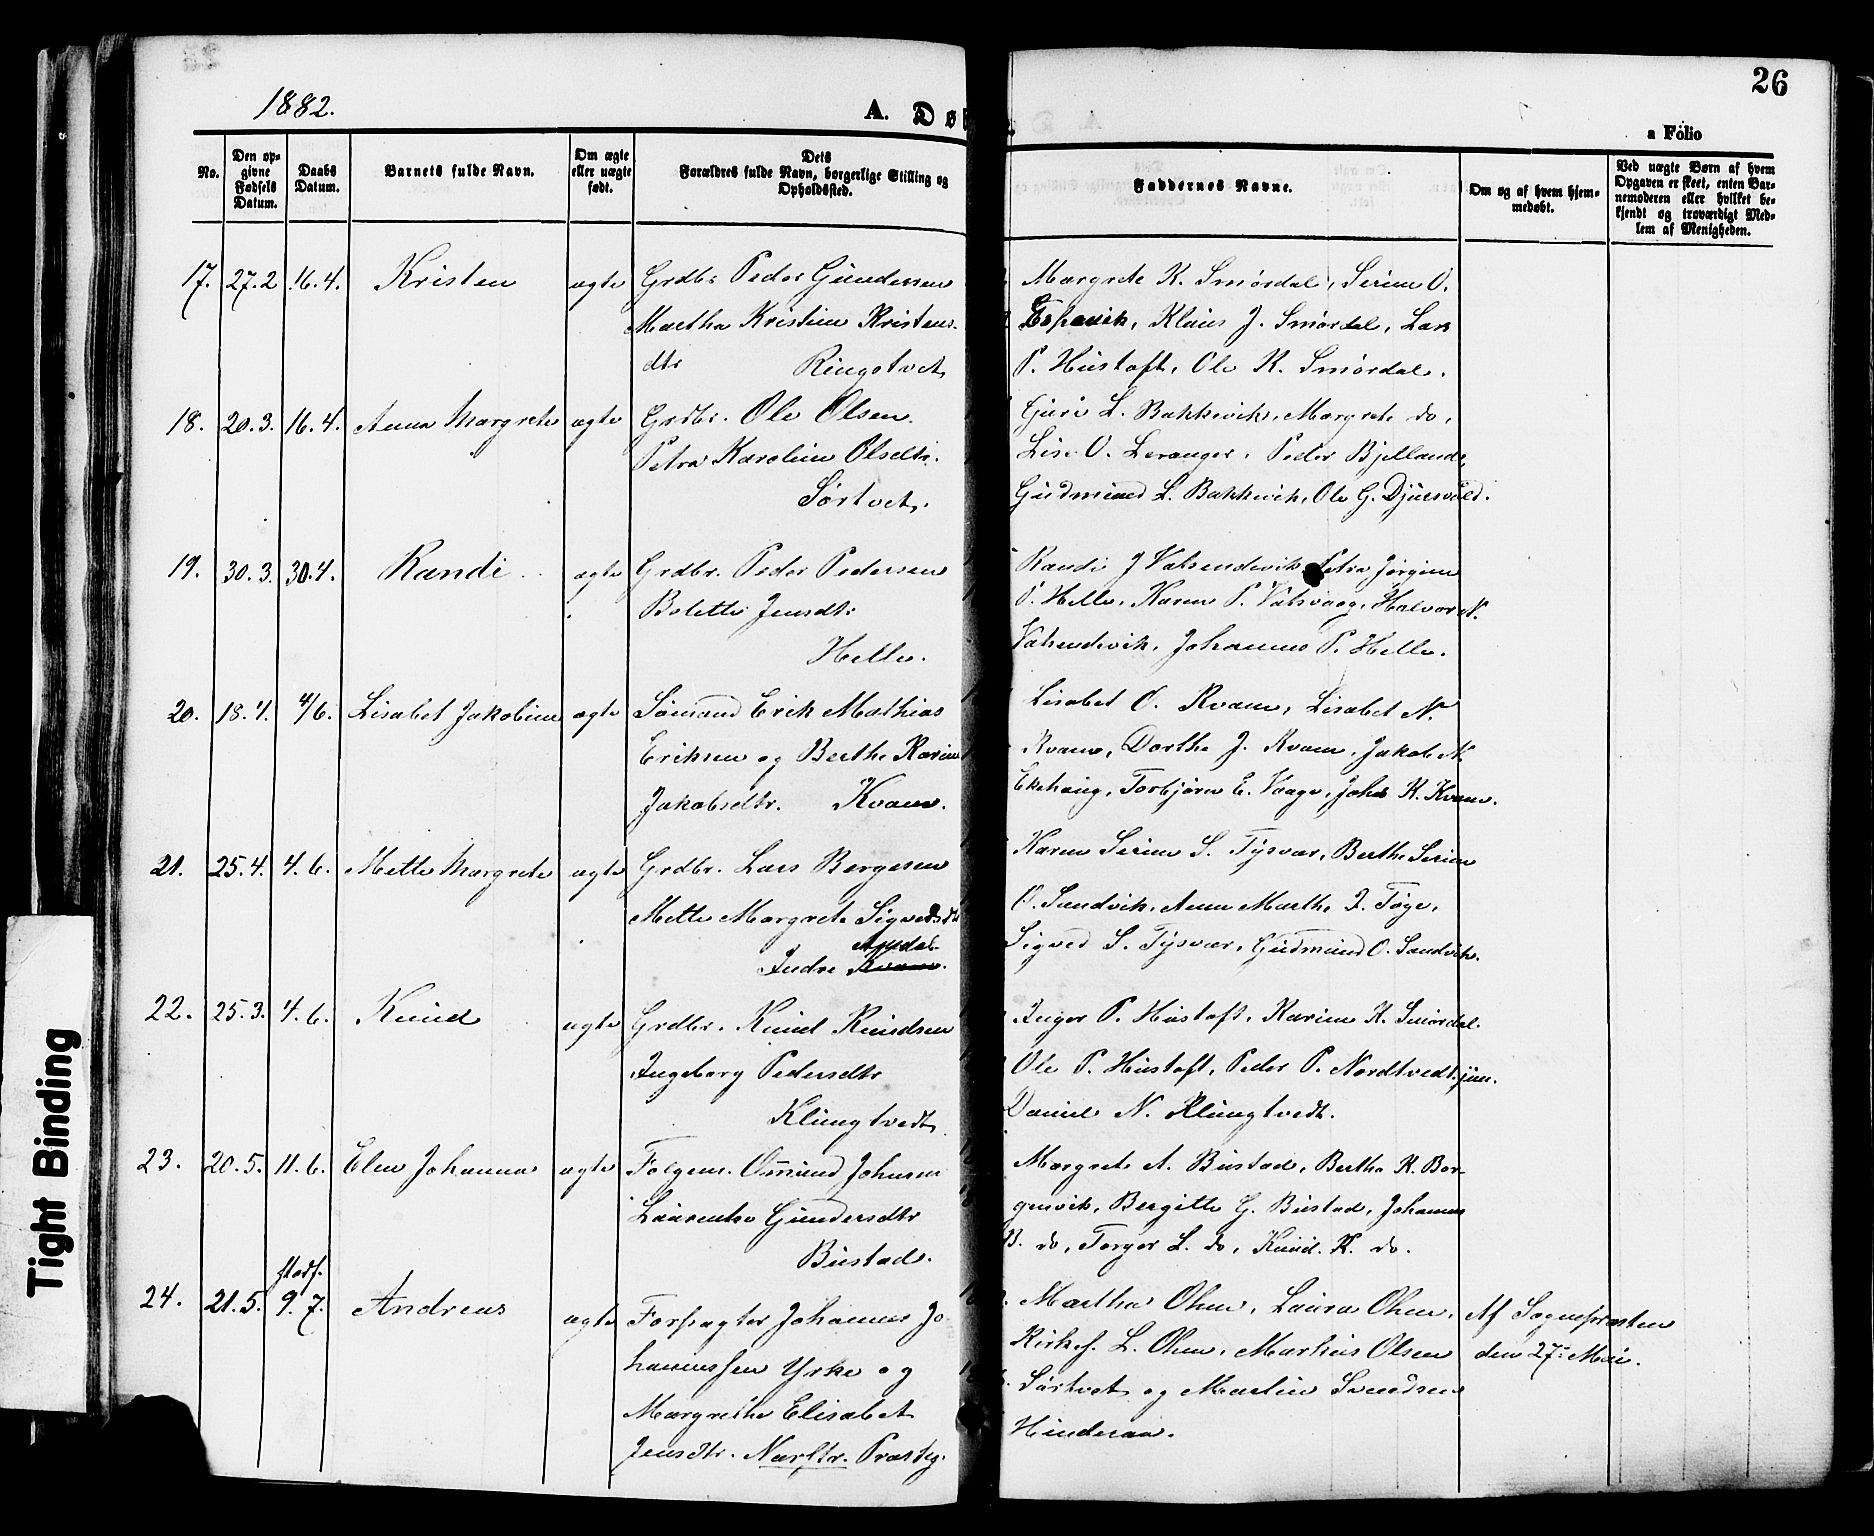 26
1882.
A. Dø
a Folio
No.
Den op-
givne
Fødsels
Datum.
Daabs
Datum.
Barnets fulde Navn.
Om ægte
eller uægte
født.
Dets
Forældres fulde Navn, borgerlige Stilling og
Opholdssted.
Faddernes Navne.
Om og af hvem hjem-
medøbt.
Ved uægte Børn af hvem
Opgaven er skeet, enten Bar-
nemoderen eller hvilket be-
kjendt og troværdigt Med-
lem af Menigheden.
17. 27.2 16.4. Kristen ægte Grdbr Peder Gundersen
Martha Kristine Kristens-
dtr Ringstvet
Margrete K. Smørdal, Serine O.
Espevik, Klaus J. Smørdal, Lars
P. Hustoft, Ole K. Smørdal.
18. 20.3. 16.4. Anna Margrete ægte Grdbr. Ole Olsen
Petra Karoline Olsdtr.
Sørtvet.
Guri L. Bakkevik, Margrete do,
Lise O. Leranger, Peder Bjelland,
Gudmund L. Bakkevik, Ole G. Djursvold.
19. 30.3. 30.4. Randi ægte Grdbr. Peder Pedersen
Bolette Jensdtr
Helle.
Randi J Vatsendvik Petra Jørgine
P. Helle, Karen P. Vatsvaag, Halvor N.
Vatsendvik, Johannes P. Helle.
20. 18.4. 4/6. Lisabet Jakobine ægte Sømand Erik Mathias
Eriksen og Berthe Karine
Jakobsdtr. Kvam.
Lisabet O. Kvam, Lisabet N.
Kvam, Dorthe J. Kvam, Jakob N.
Ekehaug, Torbjørn E. Vaage, Johs K. Kvam.
21. 25.4. 4.6. Mette Margrete ægte Grdbr. Lars Bergesen
Mette Margrete Sigvedsdtr
Apdal
Indre Kvam.
Karen Serine S. Tysvær, Berthe Serine
O. Sandvik, Anna Marthe L. Tøge,
Sigved S. Tysvær, Gudmund O. Sandvik.
22. 25.3. 4.6. Knud ægte Grdbr. Knud Knudsen
Ingeborg Pedersdtr
Klungtvedt
Inger P. Hustoft, Karine K. Smørdal.
Ole P. Hustoft, Peder P. Nordtvedt jun.
Daniel N. Klungtvedt.
23. 20.5. 11.6. Elen Johanna ægte Følgem. Omund Johnsen
Laurentse Gundersdtr
Bustad.
Margrete A. Bustad, Bertha K. Bor-
genvik, Bergitte G. Bustad, Johannes
B. do, Torger L. do, Knud K. do.
stadf.
24. 21.5. 9.7. Andreas ægte Forpagter Johannes Jo-
hannessen Yrke og
Margrethe Elisabet
Jensdtr. Nærstr. Præstg.
Martha Ohm, Laura Ohm,
Kirkes. L. Ohm, Markus Olsen
Sørtvet og Martin Svendsen
Hinderaa.
Af Sognepræsten
den 27de Mai.
Tight Binding